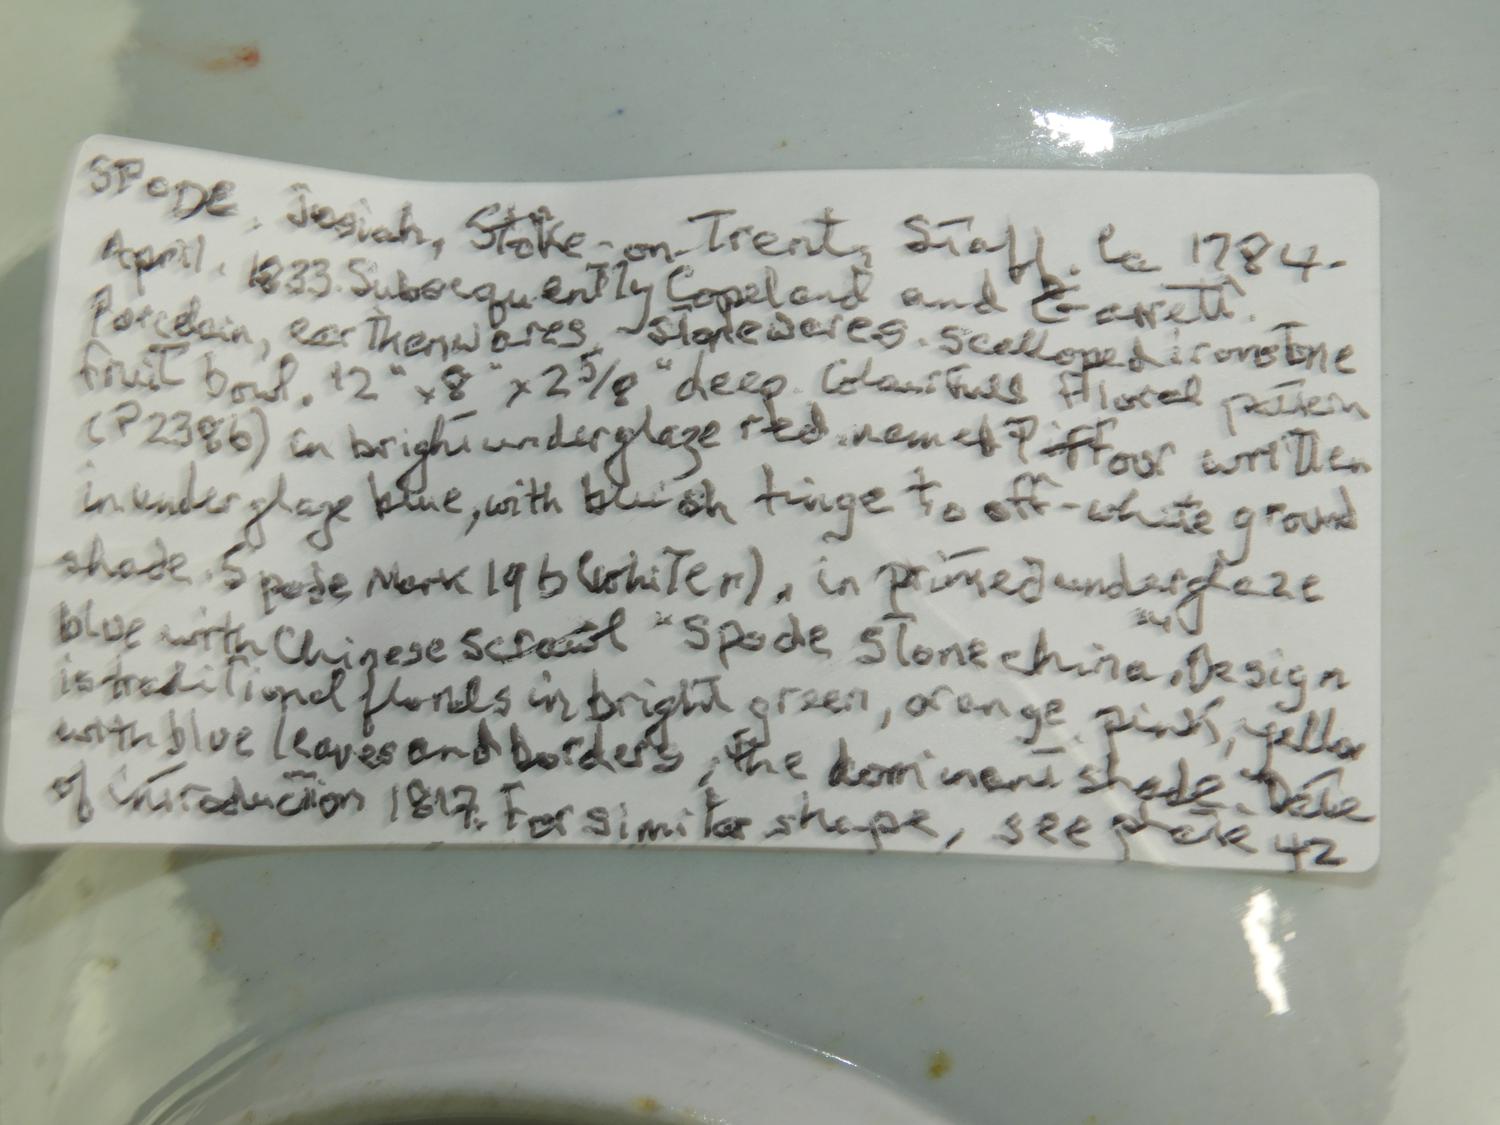 SPODE, Josiah, Stoke-on-Trent, Staff. c 1784-
April, 1833. Subsequently Copeland and Garrett.
Porcelain, earthenwares, stonewares. Scalloped ironstone
fruit bowl, 12" x 8" x 2 5/8" deep. floral pattern
(P2386) in bright underglaze red, written
in underglaze blue, with bluish tinge to off-white ground
shade. Spode Mark 19b (Whiter), in printed underglaze
blue with Chinese scrawl "Spode Stone china". Design
is traditional florals in bright green, orange, pink, yellow
with blue leaves and borders, the dominant shade. Date
of introduction 1817. For similar shape, see plate 42